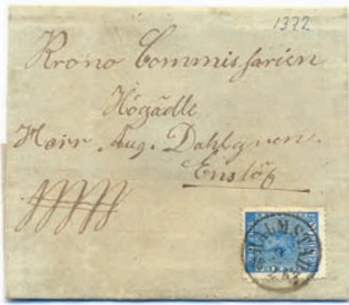 1372
Krono Commissarien
Högädle
Herr Aug. Dahlgren.
Enslöf
HALMSTAD